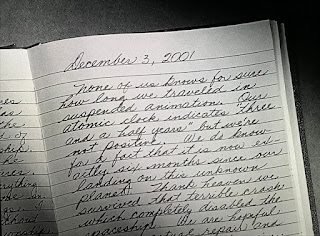 December 3, 2001
None of us knows for sure
how long we traveled in
suspended animation. Our
atomic clock indicates "three
and a half years" but we're
not positive. We do know
for a fact that it is now ex-
actly six months since our
landing on this unknown
planet! Thank heaven we
survived that terrible crash
which completely disabled the
spaceship. We are hopeful
repair and